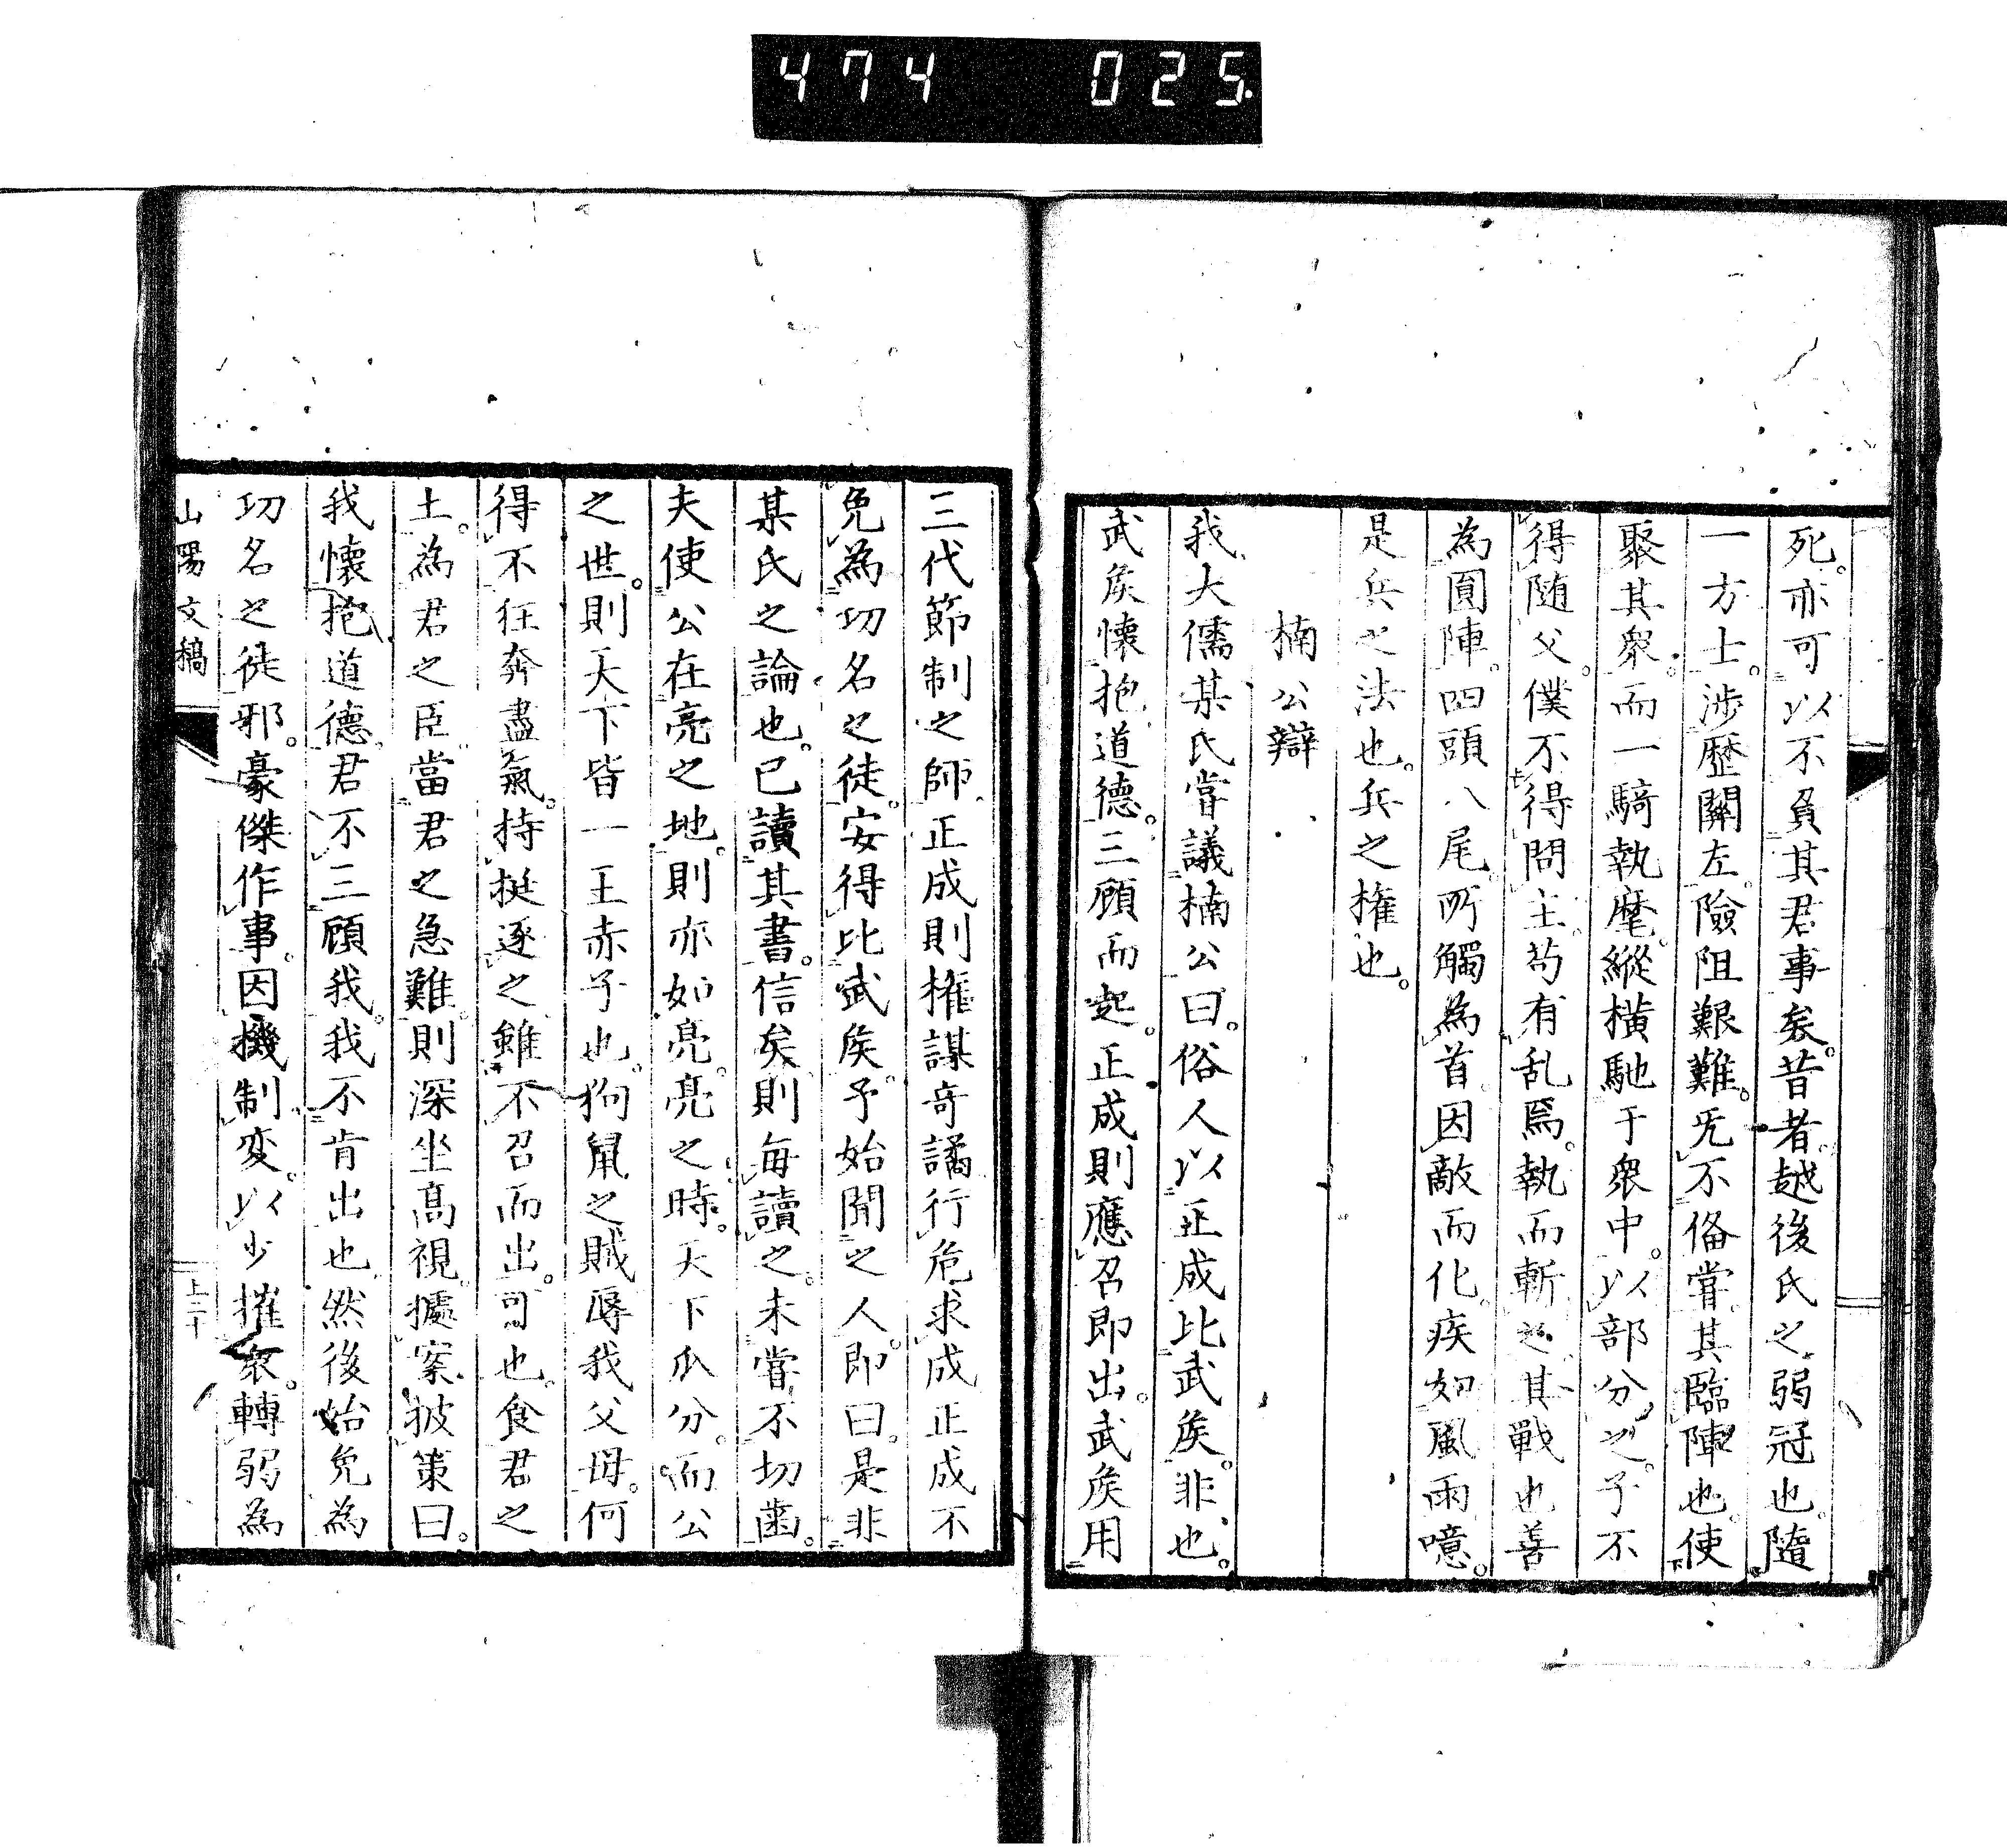 474 025
死。亦可以不負其君事矣。昔者。越後氏之弱冠也。隨
一方士。渉歴關左。險阻艱難。旡不俻甞。其臨陣也。使
聚其衆。而一騎執麾。縱横馳于衆中。以部分之。子不
得随父。僕不得問主。苟有乱焉。執而斬之。其戰也善
為圓陣。四頭八尾。所觸為首。因敵而化。疾如風雨。噫。
是兵之法也。兵之權也。
楠公辯
我大儒某氏甞議楠公曰。俗人以正成比武矦。非也。
武矦懐抱道德。三顧而起。正成則應召即出。武矦用
三代節制之師。正成則權謀奇譎。行危求成。正成不
免為功名之徒。安得比武矦。予始聞之人。即曰。是非
某氏之論也。已讀其書。信矣。則毎讀之。未甞不切齒。
夫使公在亮之地。則亦如亮。亮之時。天下瓜分。而公
之世。則天下皆一王赤子也。狗鼠之賊辱我父母。何
得不狂奔盡氣。持挺逐之。雖不召而出。可也。食君之
土。為君之臣。當君之急難。則深坐高視。據案披策曰。
我懐抱道德。君不三顧我。我不肯出也。然後始免為
功名之徒邪。豪傑作事。因機制変。以少摧衆。轉弱為
山陽文稿
上二十